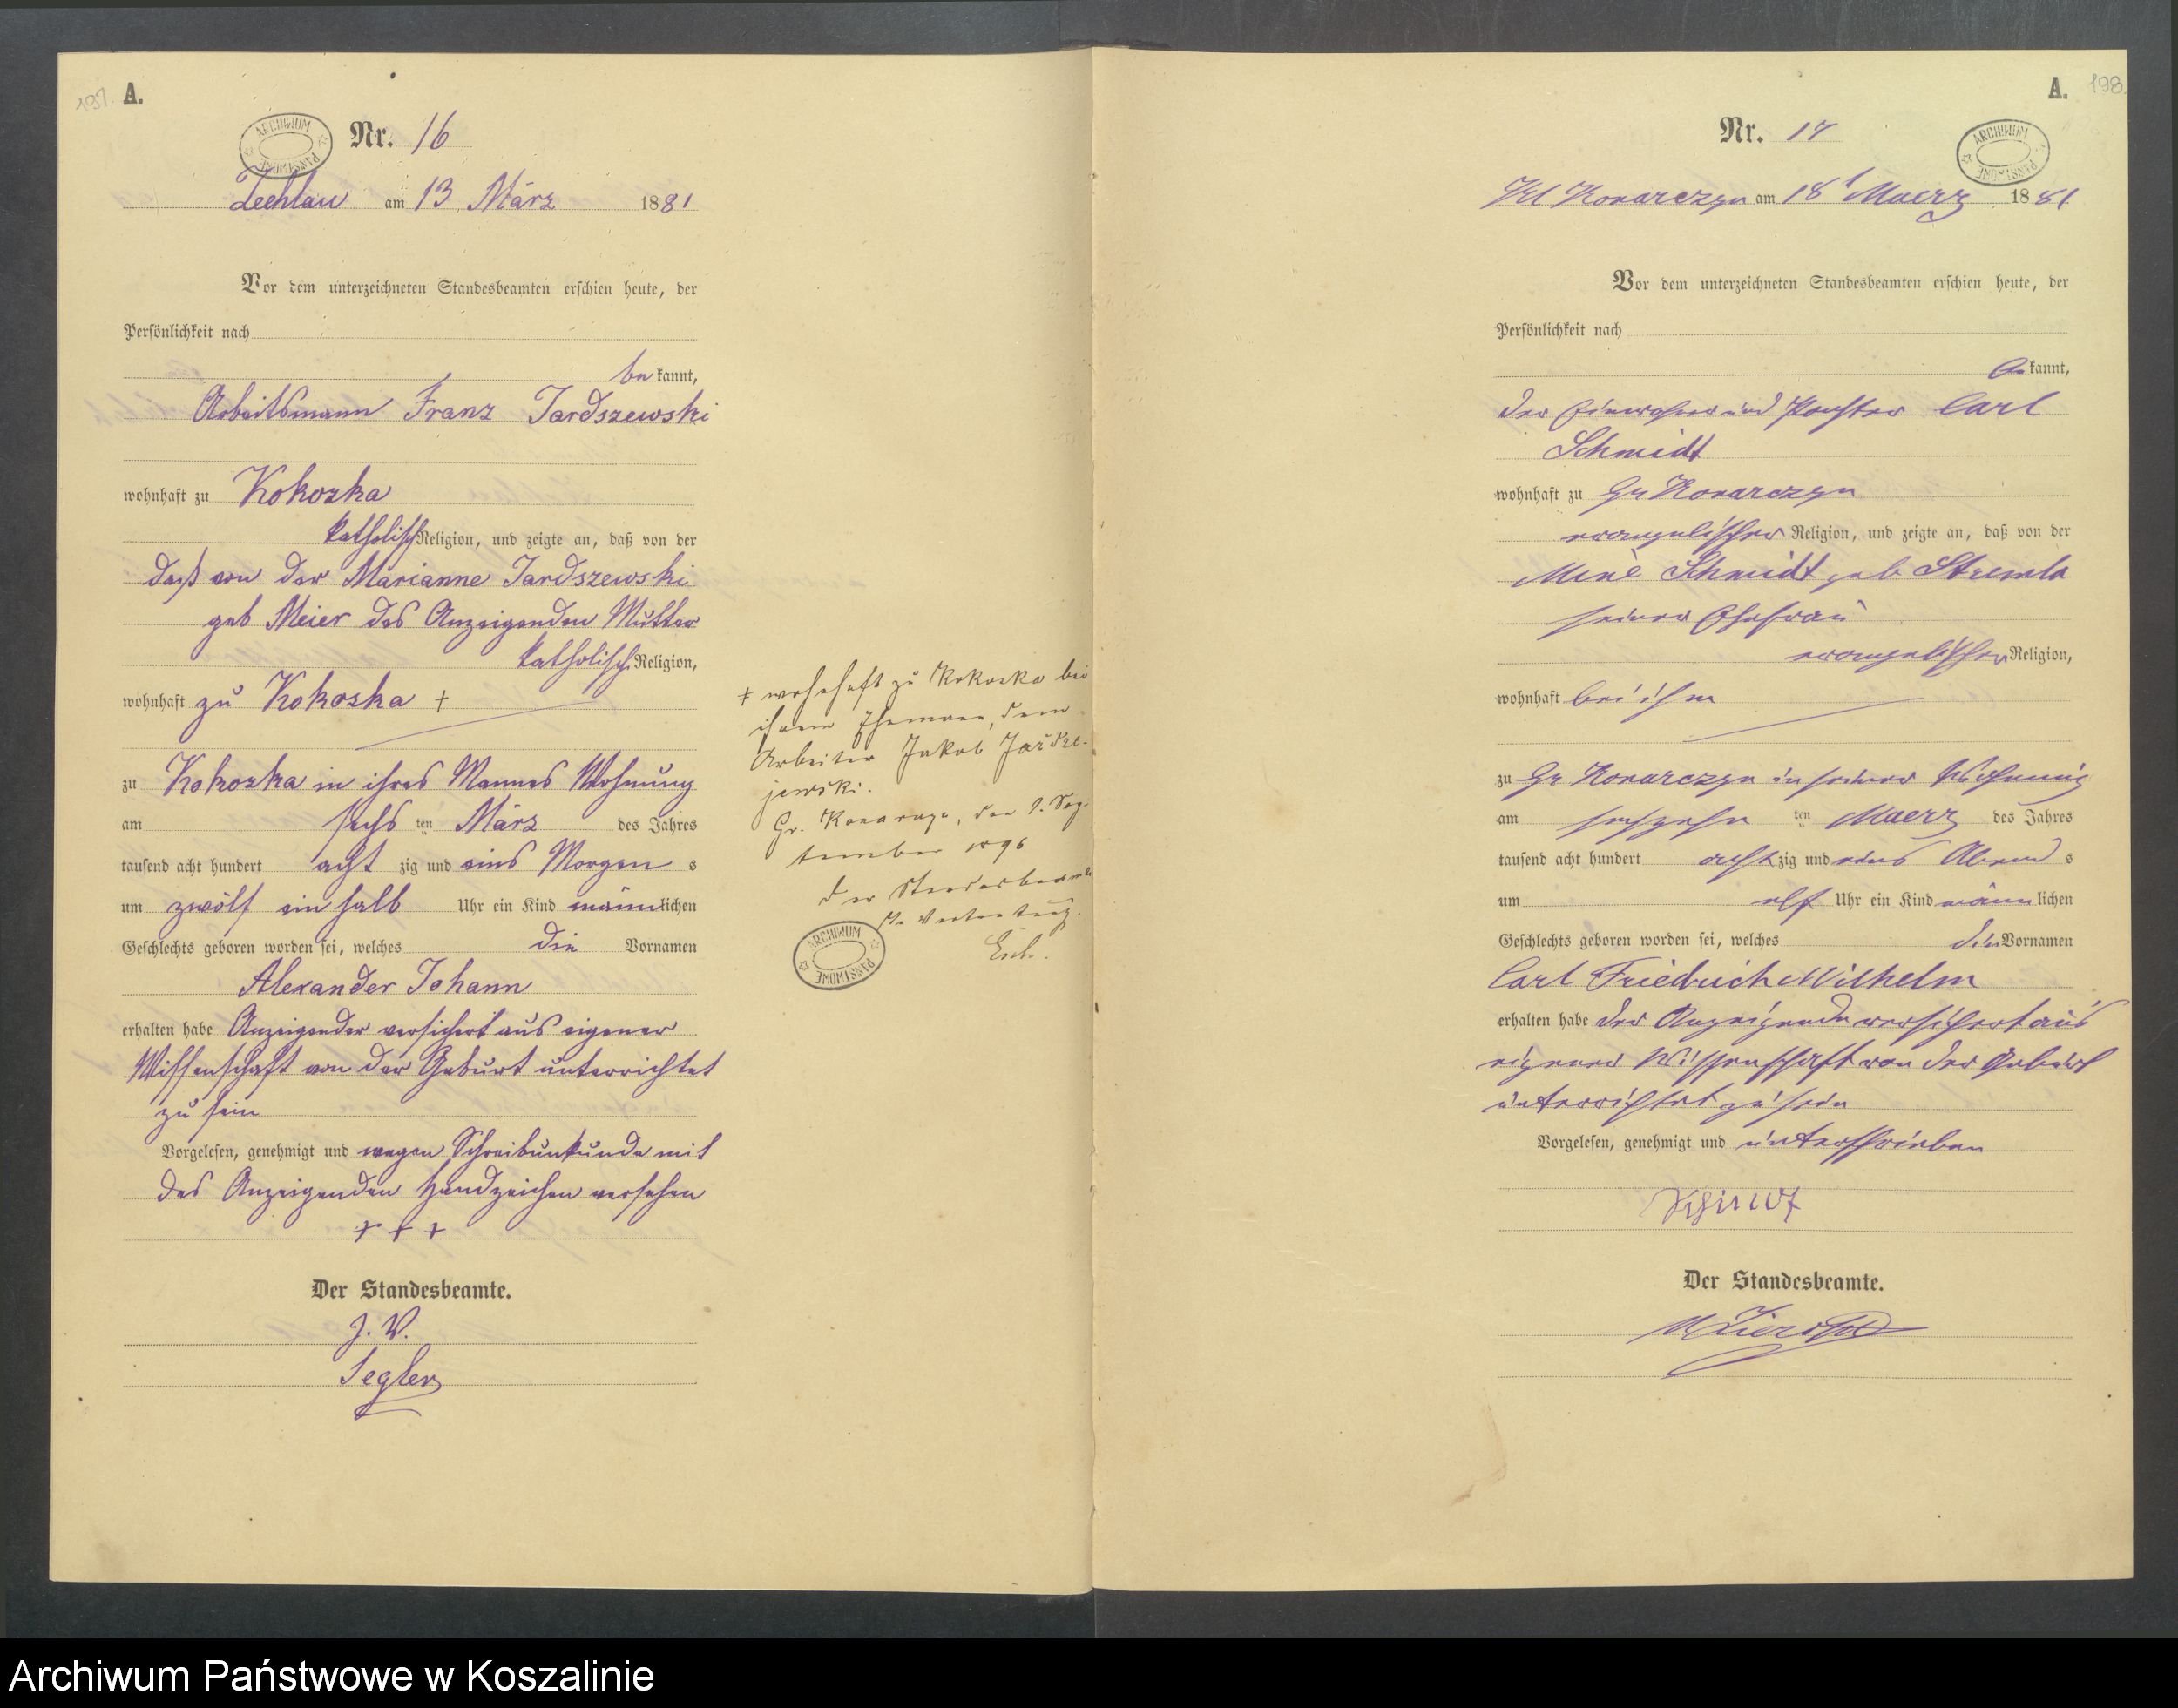 197.
A.
ARCHIWUM PAŃSTWOWE
Nr. 16
Zechlau am 13 März 1881
Vor dem unterzeichneten Standesbeamten erschien heute, der
Persönlichkeit nach
be kannt,
Arbeitsmann Franz Jardszewski
wohnhaft zu Kokozka
katholisch Religion, und zeigte an, daß von der
daß von der Marianne Jardszewski
geb Meier des Anzeigenden Mutter
katholisch Religion,
wohnhaft zu Kokoska +
zu Kokozka in ihres Mannes Wohnung
am sechs ten März des Jahres
tausend acht hundert acht zig und eins Morgen s
um zwölf ein halb Uhr ein Kind männlichen
Geschlechts geboren worden sei, welches die Vornamen
Alexander Johann
erhalten habe Anzeigender versichert aus eigener
Wissenschaft von der Geburt unterrichtet
zu sein
Vorgelesen, genehmigt und wegen Schreibunkunde mit
des Anzeigenden Handzeichen versehen
+ + +
Der Standesbeamte.
J. V.
Segler
+ wohnhaft zu Kokoska bei
ihrem Ehemann, dem
Arbeiter Jakob
jewski.
Gr. Konarzyn, den 9. Sep-
tember 1896
Der Standesbeamte
In Vertretung.
ARCHIWUM PAŃSTWOWE
A.
198.
Nr. 17
ARCHIWUM PAŃSTWOWE
Kl Konarczyn am 18t Maerz 1881
Vor dem unterzeichneten Standesbeamten erschien heute, der
Persönlichkeit nach
be kannt,
der Einwohner und Carl
Schmidt
wohnhaft zu Gr Konarczyn
evangelischer Religion, und zeigte an, daß von der
Schmidt geb
seiner Ehefrau
evangelischer Religion,
wohnhaft bei ihm
zu Gr Konarczyn in seiner Wohnung
am sechzehn ten Maerz des Jahres
tausend acht hundert acht zig und eins Abend s
um elf Uhr ein Kind männ lichen
Geschlechts geboren worden sei, welches die Vornamen
Carl Friedrich Wilhelm
erhalten habe der Anzeigende versichert aus
eigener Wissenschaft von der Geburt
unterrichtet zu sein
Vorgelesen, genehmigt und unterschrieben
Der Standesbeamte.
Archiwum Państwowe w Koszalinie